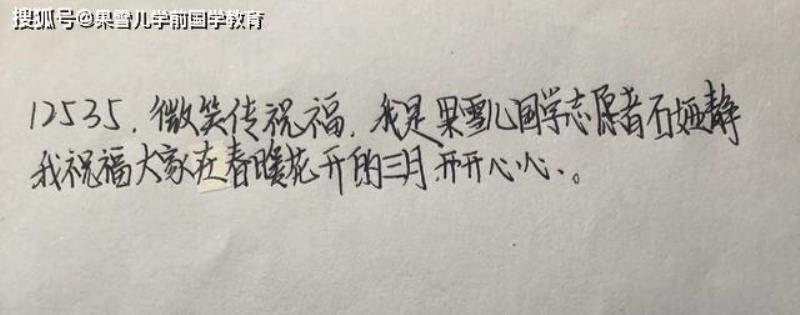 搜狐号@果雪儿学前国学教育
12535.微笑传祝福.我是果雪儿国学志愿者石娅静
我祝福大家在春暖花开的三月.开开心心.。